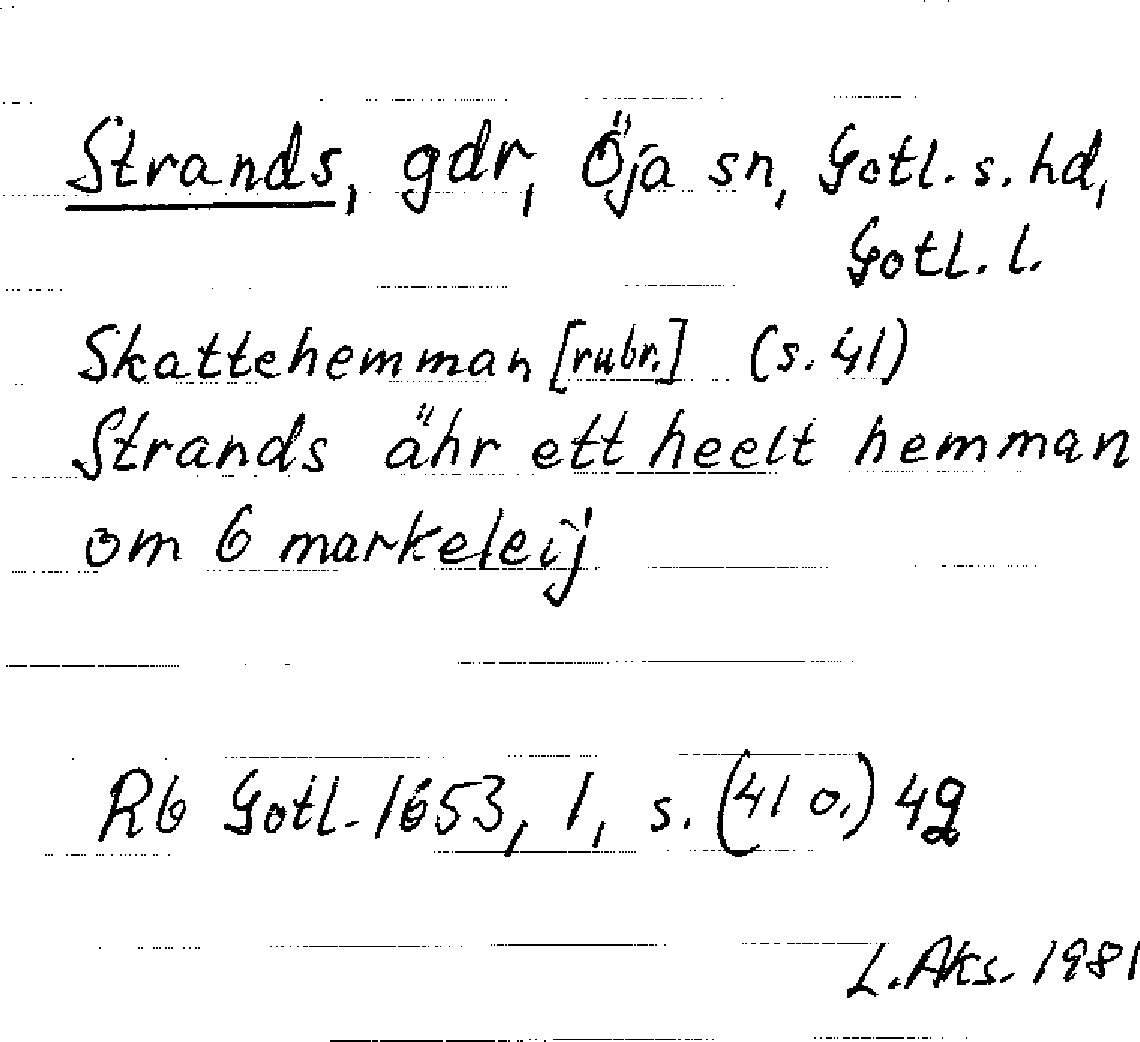 Strands, gdr, Öja sn, Gotl. s. hd,
Gotl. l.
Skattehemman [rubr.] (s. 41)
Strands ähr ett heelt hemman
om 6 markeleij
Rb Gotl. 1653, 1, s. (41 o.)
L. Aks. 1981